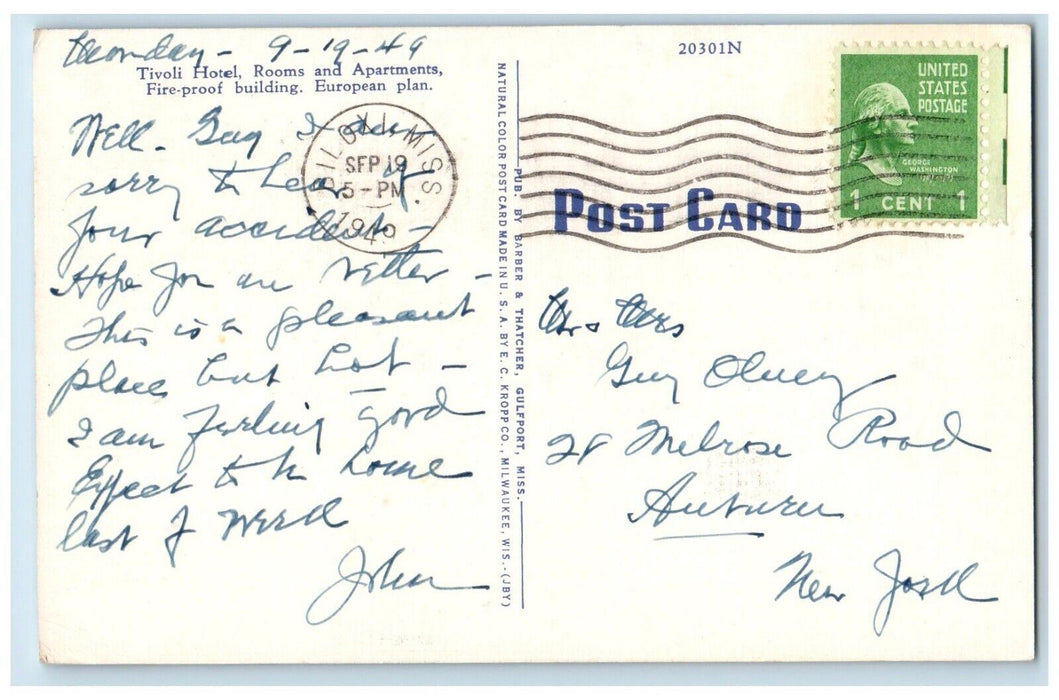 Monday - 9-19-49
Tivoli Hotel, Rooms and Apartments,
Fire-proof building. European plan.
Well - Guy I am
sorry to hear of
your accident -
Hope you are better -
This is a pleasant
place but hot -
I am feeling good
Expect to be home
last of week
John
BILOXI, MISS.
SEP 19
5 - PM
1949
NATURAL COLOR POST CARD MADE IN U. S. A. BY E. C. KROPP CO., MILWAUKEE, WIS. - (JBY)
PUB. BY BARBER & THATCHER, GULFPORT, MISS.
20301N
POST CARD
UNITED
STATES
POSTAGE
GEORGE
WASHINGTON
1 CENT 1
Mr & Mrs
Guy Olney
28 Melrose Road
Auburn
New York